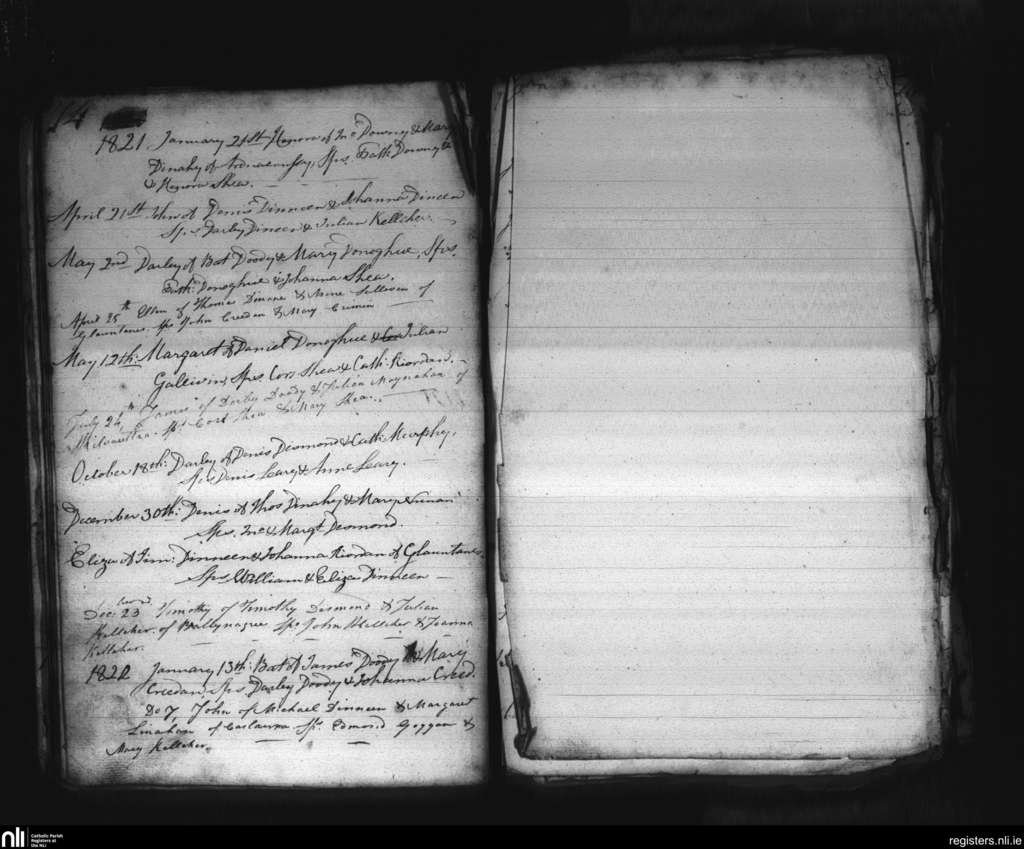 14
1821 January 21st Honora of Jno Downy & Mary
Dinahy of Sps. Batt Downy &
& Honora Shea.
April 21st John of Denis Dinneen & Johanna Dineen
Sps Darby Dineen & Julian Kelleher
May 2nd Darley of Bat Doody & Mary Donoghue, Sps.
Bath: Donoghue & Johanna Shea.
April 25th Ellen of Thomas Dinane & Anne Sullivan of
Glauntanes. Sps John Creedan & Mary Cremin
May 12th: Margaret of Daniel Donoghue & Julian
Gallivin, Sps. Cors Shea & Cath: Riordan.
July 24th James of Darby Doody & Julian Moynahan of
Sps Cors Shea & Mary Shea.
October 18th: Darley of Denis Desmond & Cath: Murphy.
Sps Denis Leary & Anne Leary.
December 30th: Denis of Thos Dinahy & Mary
Sps. Jno & Margt Desmond
Eliza of Tim: Dinneen & Johanna Riordan of Glauntanes
Sps William & Eliza Dinneen
Dec. 23 Timothy of Timothy Desmond & Julian
Kelleher of Ballynagree Sps John Kelleher & Joanna
Kelleher.
1822 January 13th: Bat of James Doody & Mary
Creedan, Sps Darley Doody & Johanna Creed.
Do 7 John of Michael Dinneen & Margaret
Linahan of Sps Edmond Goggan &
Mary Kelleher.
nli
Catholic Parish
Registers at
the NLI
registers.nli.ie